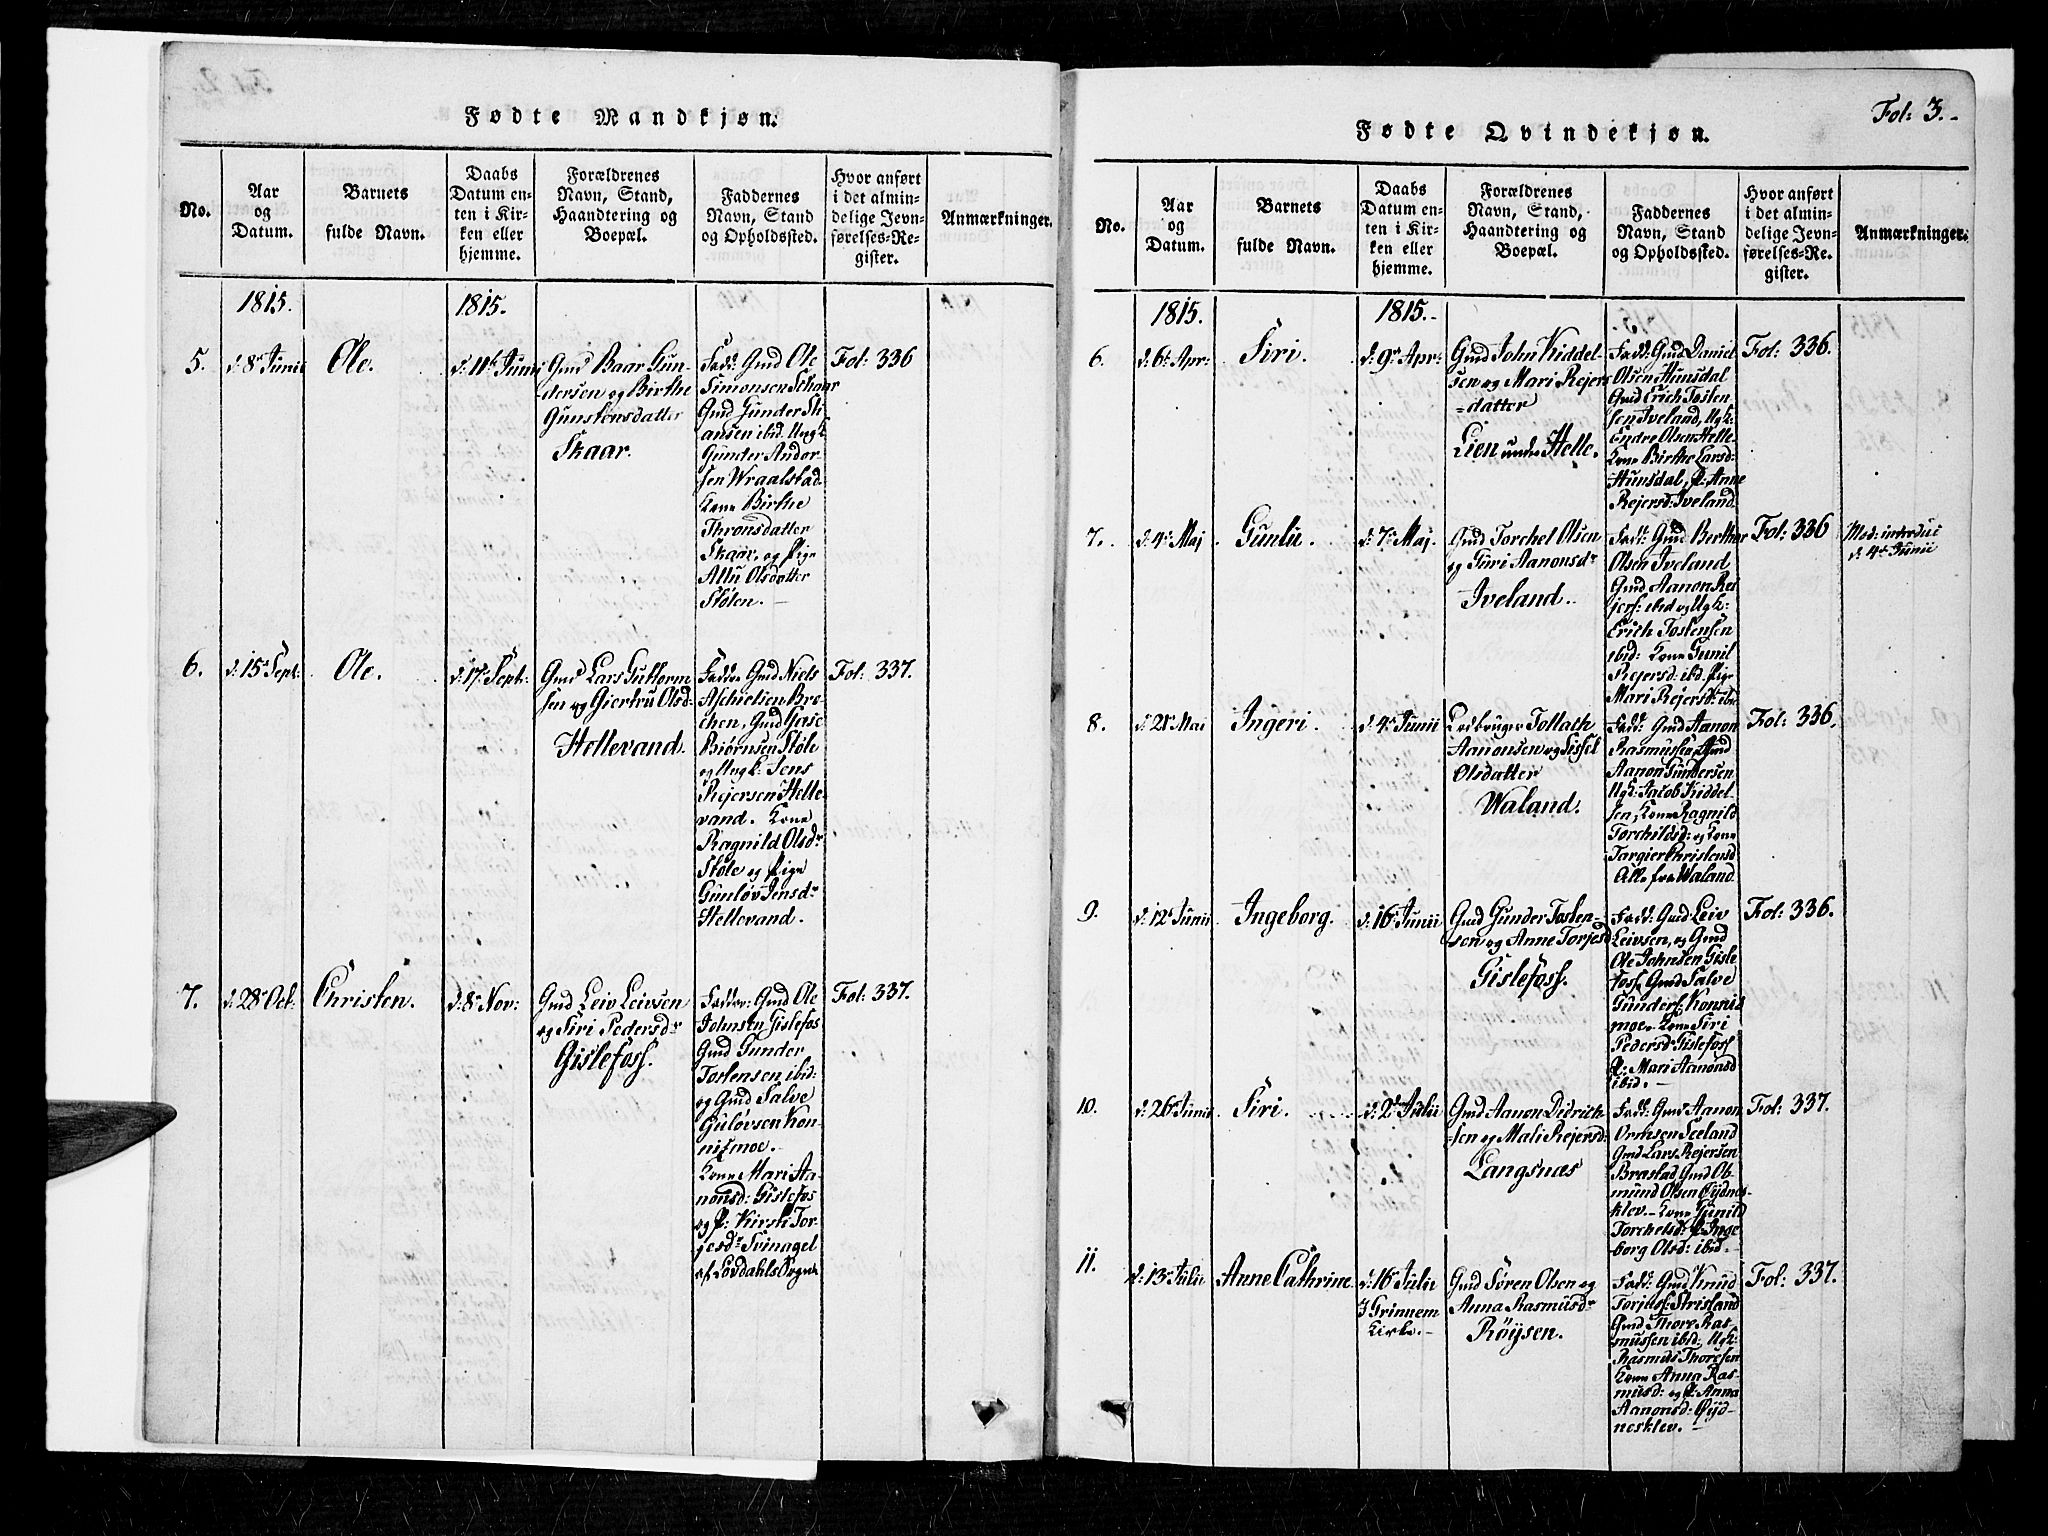 Fødte Mandkjøn.
No.
Aar
og
Datum.
Barnets
fulde Navn.
Daabs
Datum en-
ten i Kir-
ken eller
hjemme.
Forældrenes
Navn, Stand,
Haandtering og
Boepæl.
Faddernes
Navn, Stand
og Opholdssted.
Hvor anført
i det almin-
delige Jevn-
førelses-Re-
gister.
Anmærkninger.
1815.
1815.
5.
d: 8de Junii
Ole.
d: 11te Junii
Gmd Baar Gun-
dersen og Birthe
Gunstensdatter
Skaar.
Fadd: Gmd Ole
Simonsen Skaar
Gmd Gunder Sti-
ansen ibid. Ungk:
Gunder Andor-
sen Wraalstad
Kone Birthe
Thronsdatter
Skaar, og Pige
Allu Olsdatter
Stølen.
Fol: 336
6.
d: 15de Sept:
Ole.
d: 17de Sept:
Gmd Lars Guttorm-
sen og Giertru Olsd:
Hellevand.
Faddere Gmd Niels
Aschielsen Bre-
chen, Gmd Gase
Biørnsen Støle
og Ungk: Jens
Rejersen Helle-
vand. Kone
Ragnild Olsdr
Støle og Pige
Gunløv Jensdr
Hellevand.
Fol: 337.
7.
d: 28de Oct:
Christen.
d: 8de Nov:
Gmd Leiv Leivsen
og Siri Pedersdr
Gislefoss.
Fadder: Gmd Ole
Johnsen Gislefos
Gmd Gunder
Tostensen ibid:
og Gmd Salve
Guløvsen Kon-
nismoe.
Kone Mari Aa-
nonsd: Gislefos
og P: Kirsti Tor-
jesdr Svinagel
af Lovdahls Sogne
Fol: 337.
Fol: 3.
Fødte Qvindekjøn.
No.
Aar
og
Datum.
Barnets
fulde Navn.
Daabs
Datum en-
ten i Kir-
ken eller
hjemme.
Forældrenes
Navn, Stand,
Haandtering og
Boepæl.
Faddernes
Navn, Stand
og Opholdssted.
Hvor anført
i det almin-
delige Jevn-
førelses-Re-
gister.
Anmærkninger.
1815.
1815.
6.
d: 6te Apr:
Siri.
d: 9de Apr:
Gmd John Kiddel-
sen og Mari Rejers-
datter
Lien under Helle.
Fadd: Gmd Daniel
Olsen Hunsdal
Gmd Erich Tosten-
sen Iveland, Ugk:
Endre Olsen Helle.
Kone Birthe Larsd:
Hunsdal, P: Anne
Rejersd: Iveland.
Fol: 336.
7.
d: 4de Maj
Gunlu.
d: 7de Maj.
Gmd Torchel Olsen
og Siri Aanonsdr
Iveland.
Fadd: Gmd Berthor
Olsen Iveland
Gmd Aanon Rei-
jers: ibid og Ugk:
Erich Tostensen
ibid: Kone Gunil
Rejersd: ibd. Pige
Mari Rejersdr: ibd
Fol: 336
Mod: introduc
d: 4de Junii
8.
d: 21de Mai
Ingeri.
d: 4de Junii
Ledbruger Tollath
Aanonsen og Sissel
Olsdatter
Waland.
Fadd: Gmd Aanon
Rasmussen, Gmd
Aanon Gundersen
Ugk: Jacob Kiddel-
sen, Kone Ragnild
Torchildsd: og Kone
Targier Christensd
Alle fra Waland.
Fol: 336.
9.
d: 12te Junii
Ingeborg.
d: 16de Junii
Gmd Gunder Tosten-
sen og Anne Torjesd
Gislefoss.
Fadd: Gmd Leiv
Leivsen, og Gmd
Ole Johnsen Gisle
foss, Gmd Salve
Gunders: Konnis
moe. Kone Siri
Pedersdr Gislefoss
P: Mari Aanonsd
ibid.
Fol: 336.
10.
d: 26de Junii
Siri.
d: 2de Julii
Gmd Aanon Didrich-
sen og Mali Rejersd:
Langsnæs
Fadd: Gmd Aanon
Ormsen Seeland
Gmd Lars Rejersen
Brastad, Gmd Os-
mund Olsen Øydnes-
klev. Kone Gunild
Torchelsd: P: Inge-
borg Olsd: ibid.
Fol: 337.
11.
d: 13de Julii
Anne Cathrine
d: 16de Julii
I Grinnem
Kirke.
Gmd Søren Olsen og
Anna Rasmusdr
Røysen.
Fadd: Gmd Knud
Torjuss: Strisland
Gmd Thore Ras-
mussen ibid: Ugk:
Rasmus Thoresen
Kone Anna Ras-
musd: og P: Anna
Aanonsd: Øyd-
nesklev.
Fol: 337.